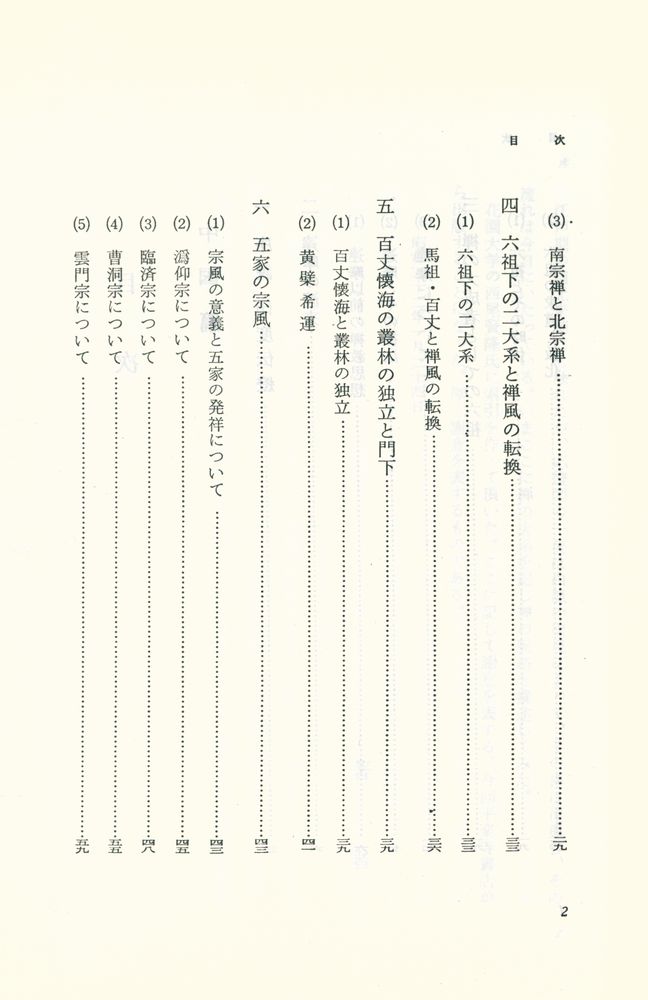 目次
(3) 南宗禅と北宗禅……二九
四 六祖下の二大系と禅風の転換……三三
(1) 六祖下の二大系……三三
(2) 馬祖・百丈と禅風の転換……三六
五 百丈懐海の叢林の独立と門下……三九
(1) 百丈懐海と叢林の独立……三九
(2) 黄檗希運……四一
六 五家の宗風……四三
(1) 宗風の意義と五家の発祥について……四三
(2) 潙仰宗について……四五
(3) 臨済宗について……四八
(4) 曹洞宗について……五五
(5) 雲門宗について……五九
2